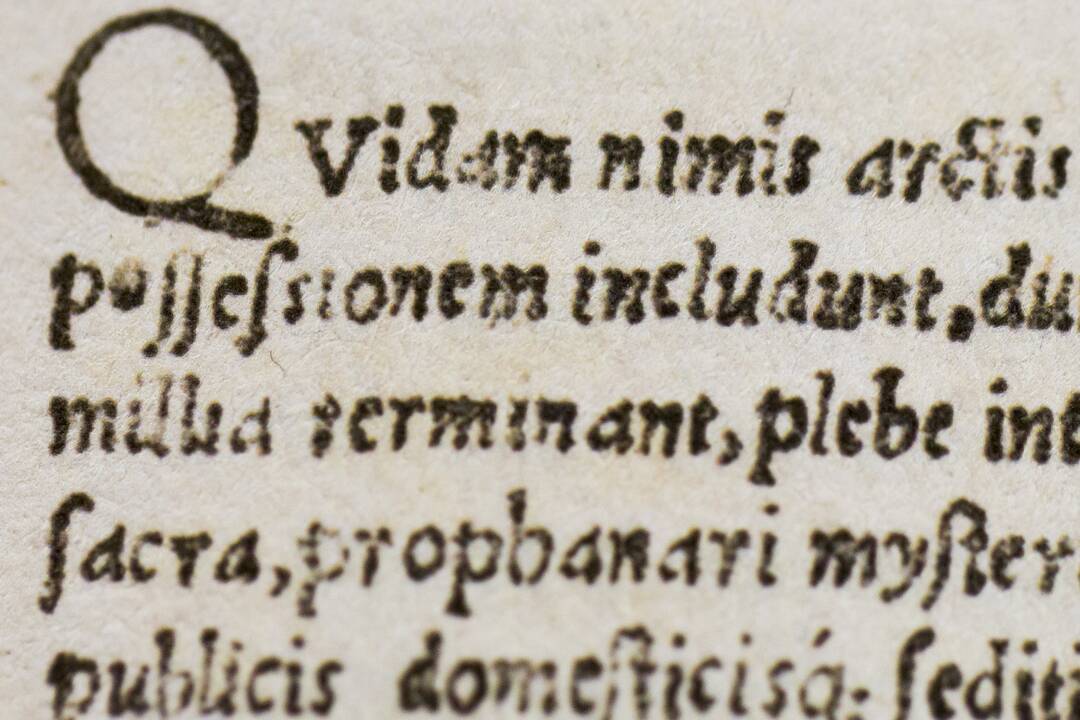 QVidam nimis arctis
poſſeſsionem includunt, du
millia terminant, plebe int
ſacra, prophanari myſter
publicis domeſticisq́; ſediti